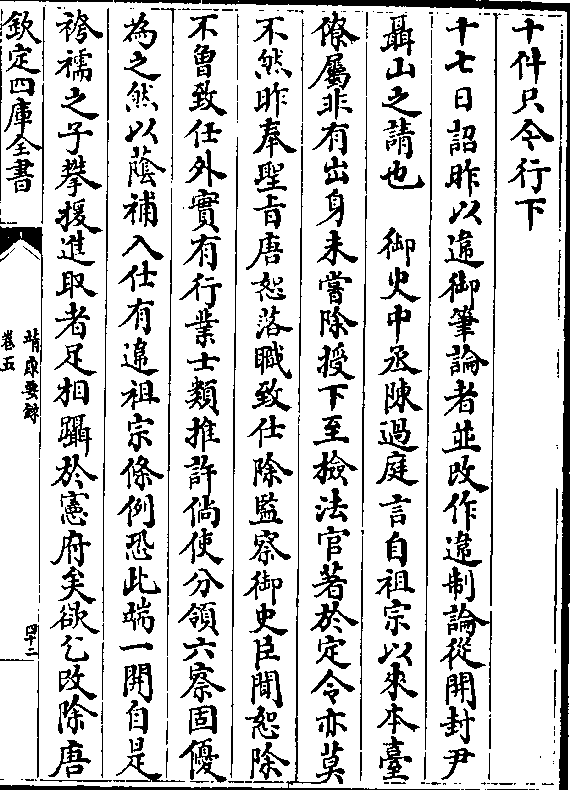 十件只令行下
十七日詔昨以違御筆論者並改作違制論從開封尹
聶山之請也　御史中丞陳過庭言自祖宗以來本臺
僚屬非有出身未嘗除授下至檢法官著於定令亦莫
不然昨奉聖旨唐恕落職致仕除監察御史臣聞恕除
不曽致任外實有行業士類推許倘使分領六察固優
為之然以蔭補入仕有違祖宗條例恐此端一開自是
袴襦之子攀援進取者足相躡於憲府矣欲乞改除唐
欽定四庫全書
靖康要録
卷五
四二